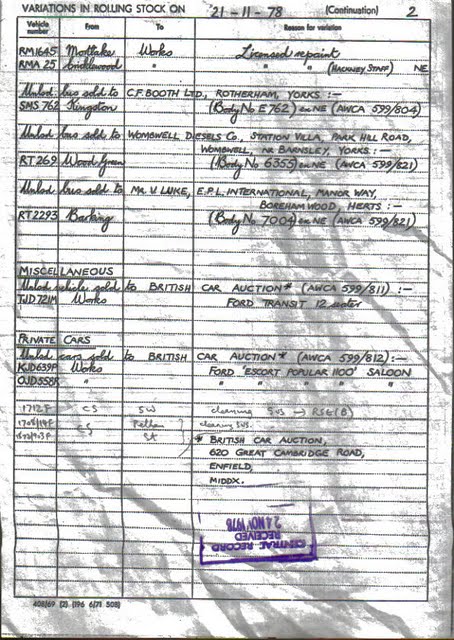 VARIATIONS IN ROLLING STOCK ON 21-11-78 (Continuation) 2
Vehicle number From To Reason for variation
RM1645 Mortlake Works Licensed repaint
RMA 25 Cricklewood " " " (HACKNEY STAFF) NE
Unlsd bus sold to C.F. BOOTH LTD., ROTHERHAM, YORKS :—
SMS 762 Kingston (Body No E762) ex NE (AWCA 599/804)
Unlsd bus sold to WOMBWELL DIESELS Co., STATION VILLA, PARK HILL ROAD,
WOMBWELL, NR BARNSLEY, YORKS :—
RT269 Wood Green (Body No 6355) ex NE (AWCA 599/821)
Unlsd bus sold to MR. V. LUKE, E.P.L. INTERNATIONAL, MANOR WAY,
BOREHAM WOOD, HERTS :—
RT2293 Barking (Body No 7004) ex NE (AWCA 599/821)
MISCELLANEOUS
Unlsd vehicle sold to BRITISH CAR AUCTION* (AWCA 599/811) :—
TJD 721M Works FORD TRANSIT 12 seater
PRIVATE CARS
Unlsd cars sold to BRITISH CAR AUCTION* (AWCA 599/812) :—
KJD639P Works FORD 'ESCORT POPULAR 1100' SALOON
OJD558R " " " " "
1712F CS SW cleaning SVS → RSE(B)
CS Pelham cleaning SVS.
* BRITISH CAR AUCTION,
620 GREAT CAMBRIDGE ROAD,
ENFIELD,
MIDDX.
CENTRAL RECORD
RECEIVED
24 NOV 1978
408/69 (2) (196 6/71 508)